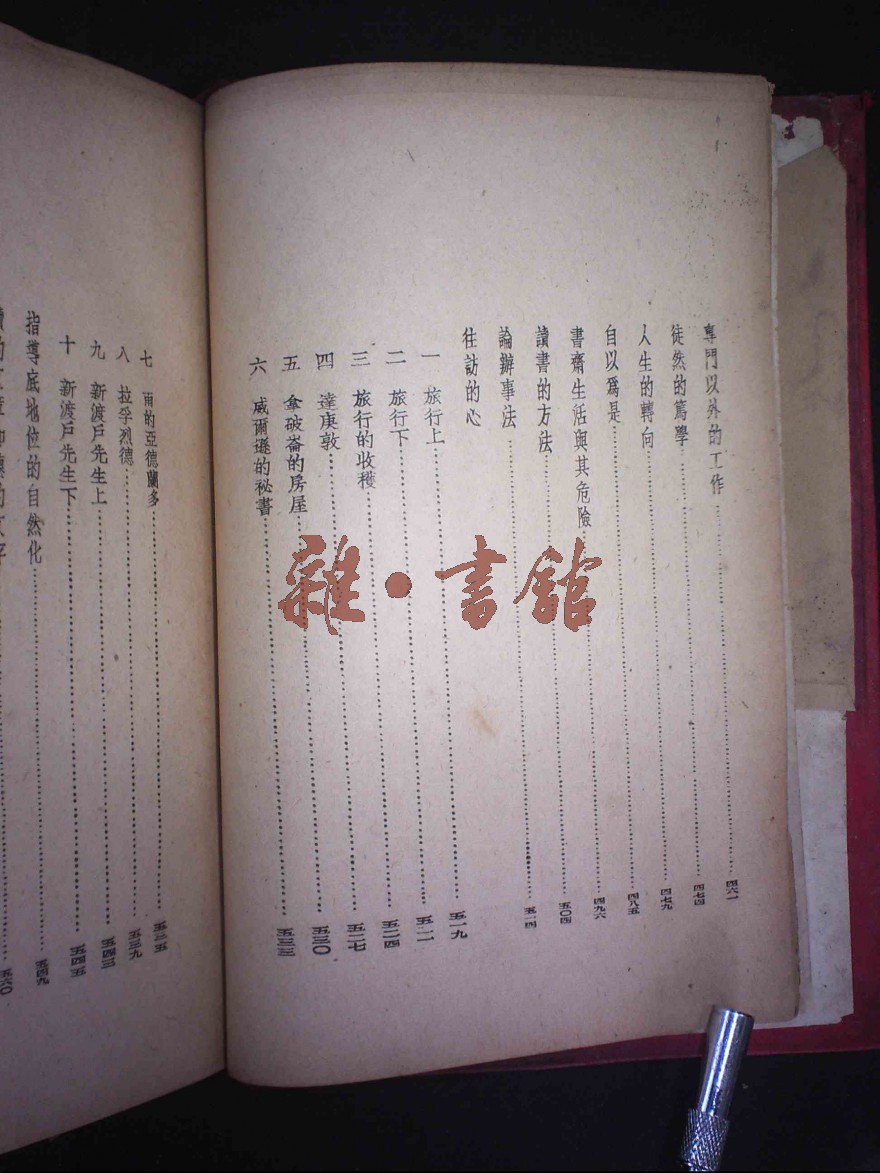 專門以外的工作……四六一
徒然的篤學……四七四
人生的轉向……四七九
自以爲是……四八五
書齋生活與其危險……四九六
讀書的方法……五〇四
論辦事法……五一四
往訪的心
一 旅行上……五一九
二 旅行下……五二一
三 旅行的收穫……五二四
四 達庚敦……五二七
五 拿破崙的房屋……五三〇
六 威爾遜的祕書……五三三
七 雨的亞德蘭多……五三五
八 拉孚烈德……五三九
九 新渡戶先生上……五四三
十 新渡戶先生下……五四五
指導底地位的自然化……五四九
……五六〇
雜·書館